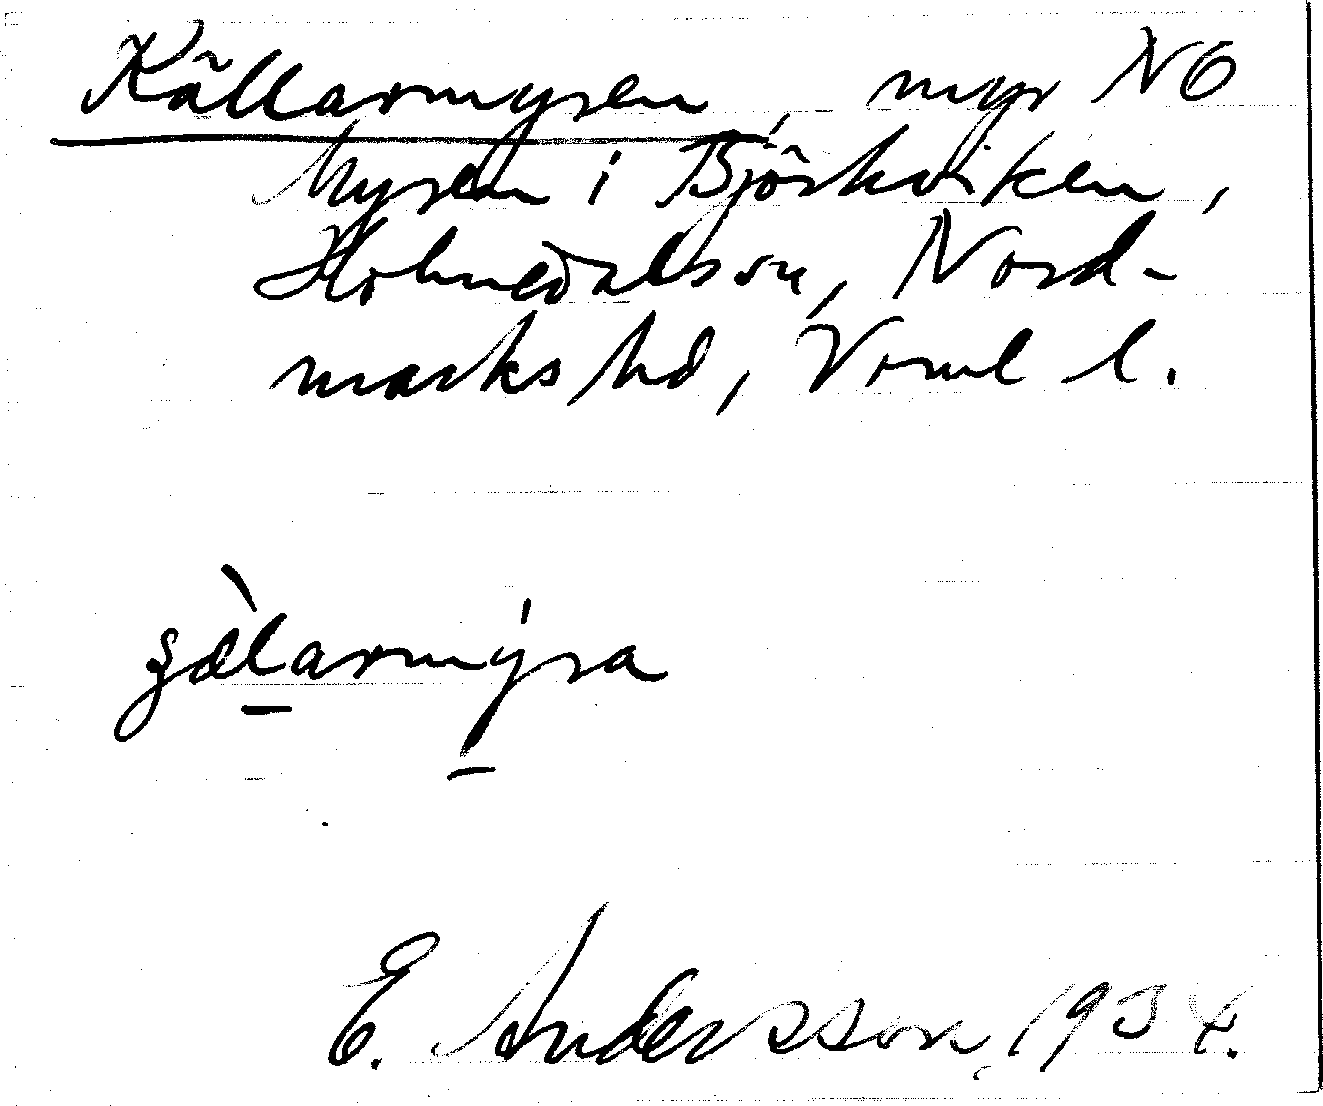 Källarmyren, myr NO
Myren i Björkviken,
Holmedals sn, Nord-
marks hd, Värml l.
E. Andersson, 1934.